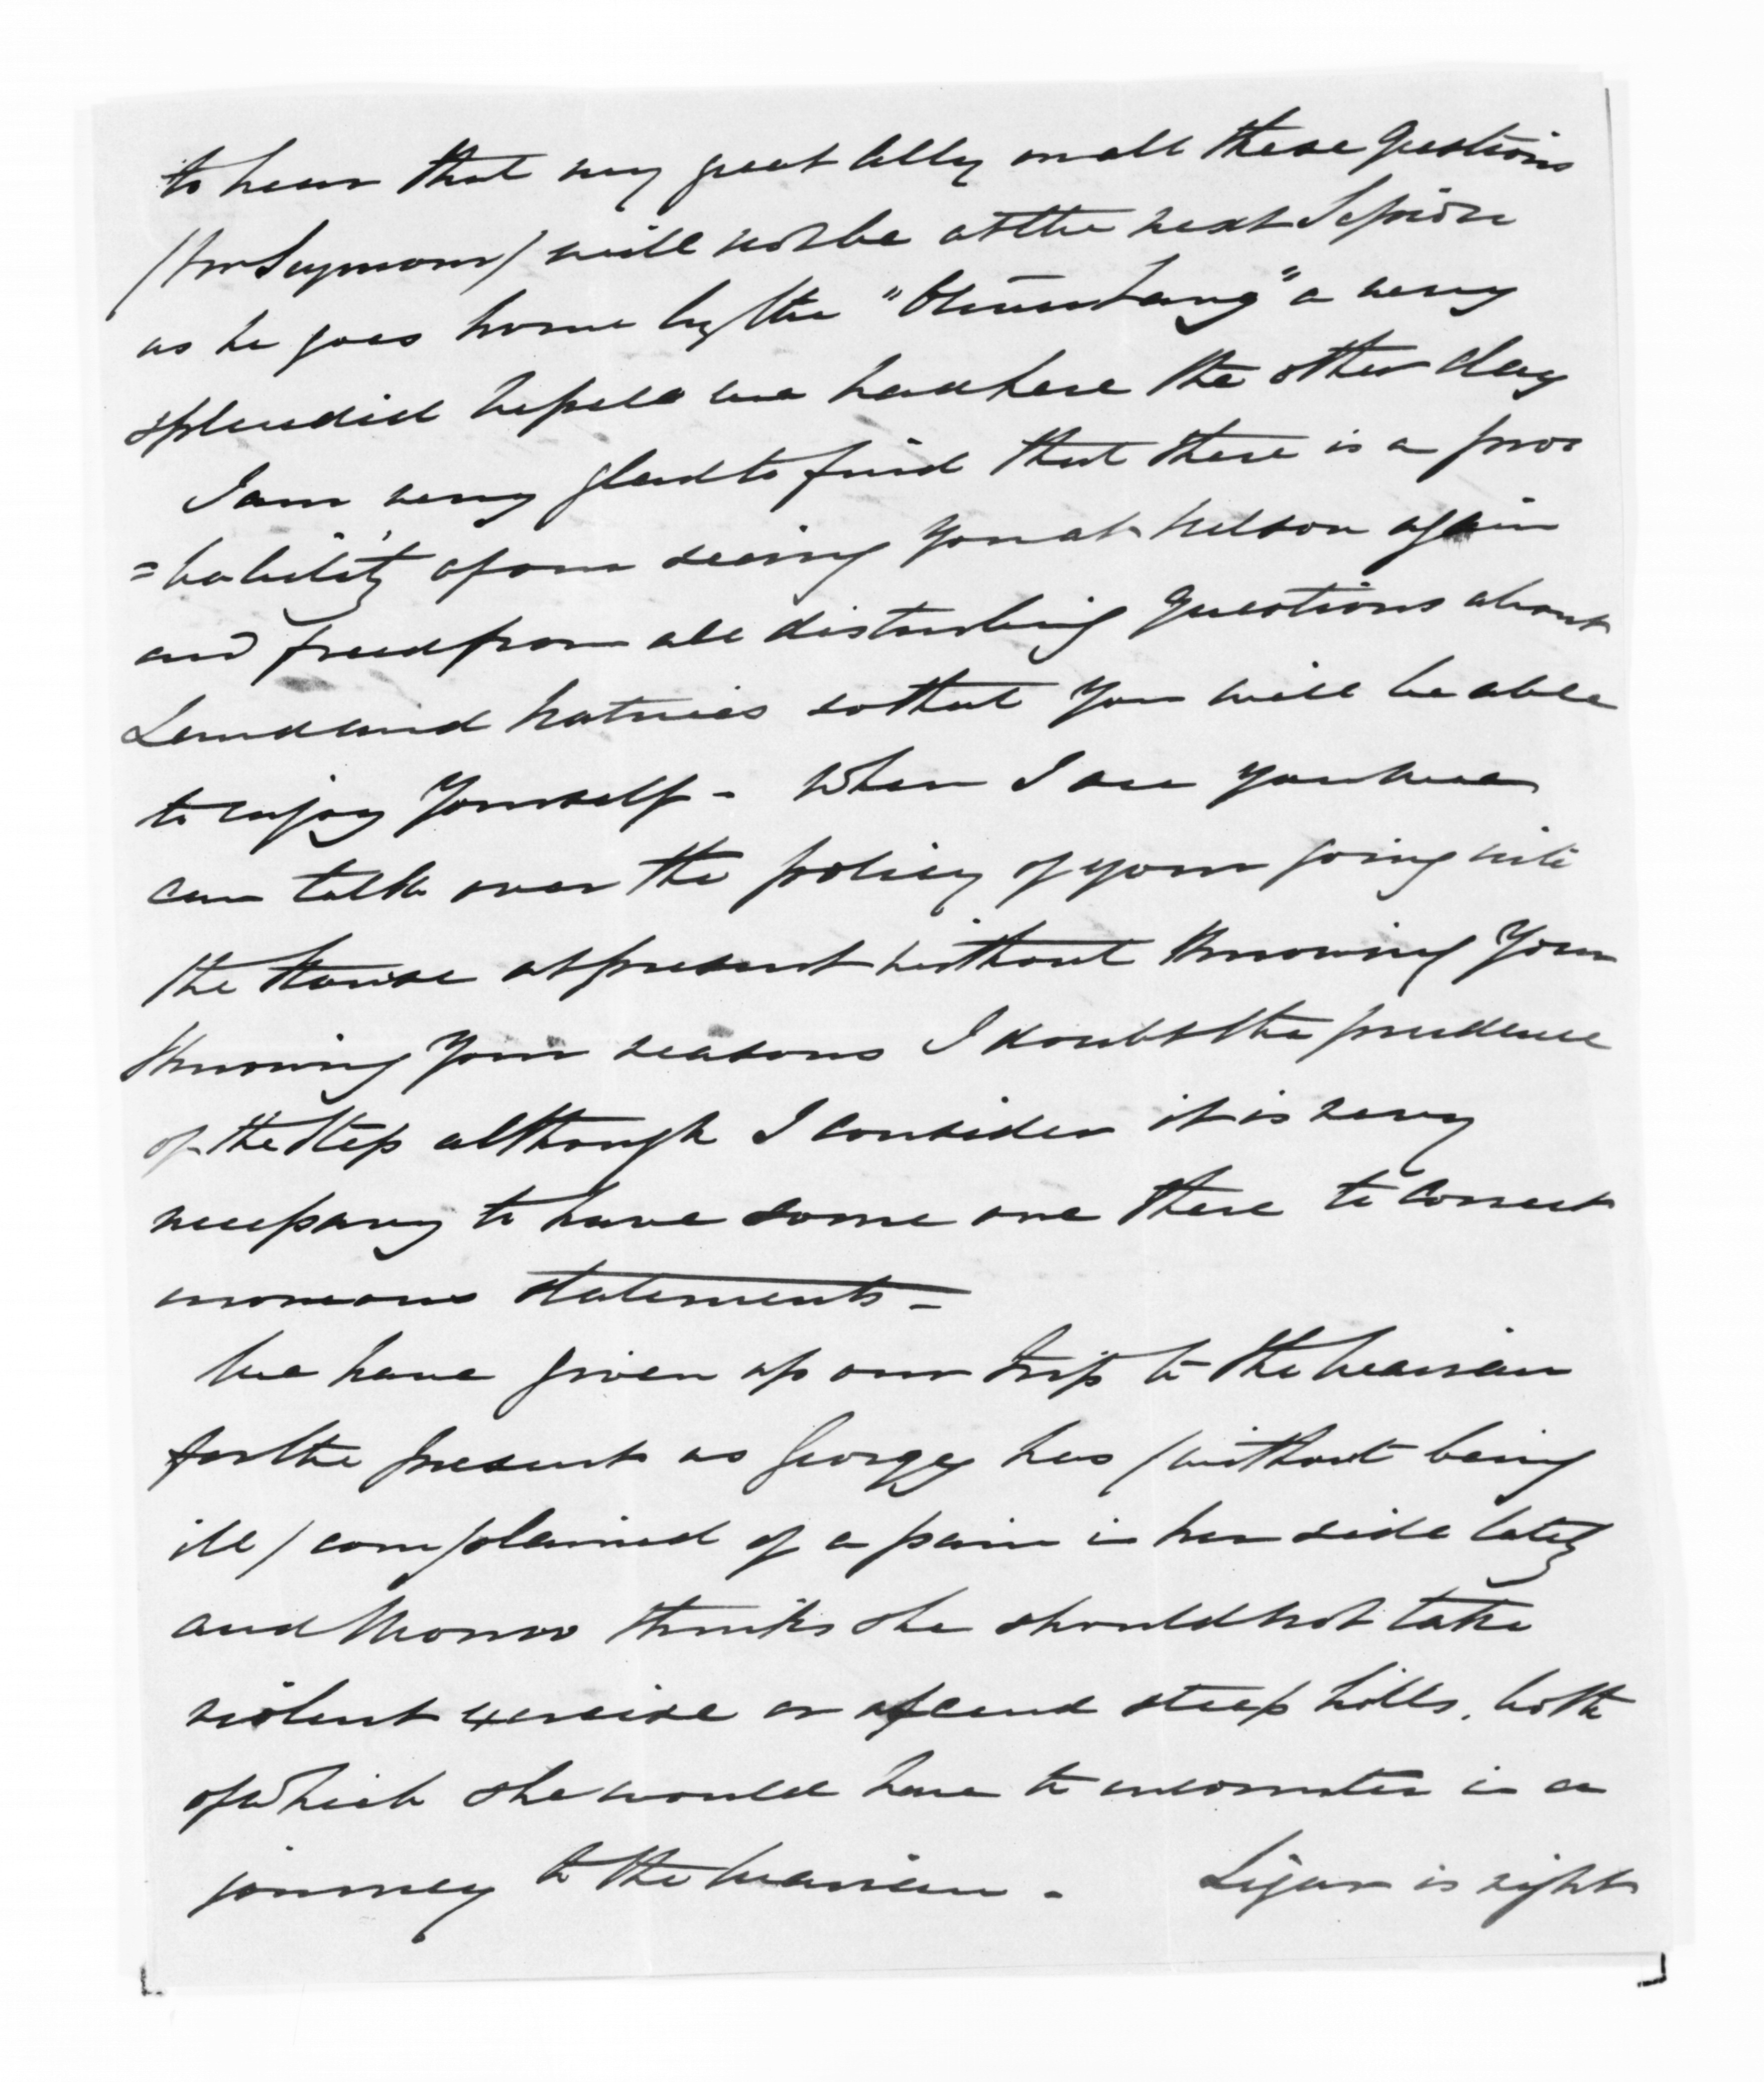 to hear that my great ally on all these Questions
/Mr Seymour/ will not be at the next Session
as he goes home by the " " a very
splendid vessel we had here the other day
I am very glad to find that there is a pro=
=bability of our seeing you at Nelson again
and freed from all disturbing Questions about
Land and Natives so that you will be able
to enjoy yourself - When I see you we
can talk over the policy of your going into
the House at present without knowing your
knowing your reasons I doubt the prudence
of the step although I consider it is very
necessary to have some one there to correct
erroneous statements -
We have given up our trip to the Wairau
for the present as Georgy has / without being
ill / complained of a pain in her side lately
and Monro thinks she should not take
violent exercise or ascend steep hills. both
of which she would have to encounter in a
journey to the Wairau - Ligar is right